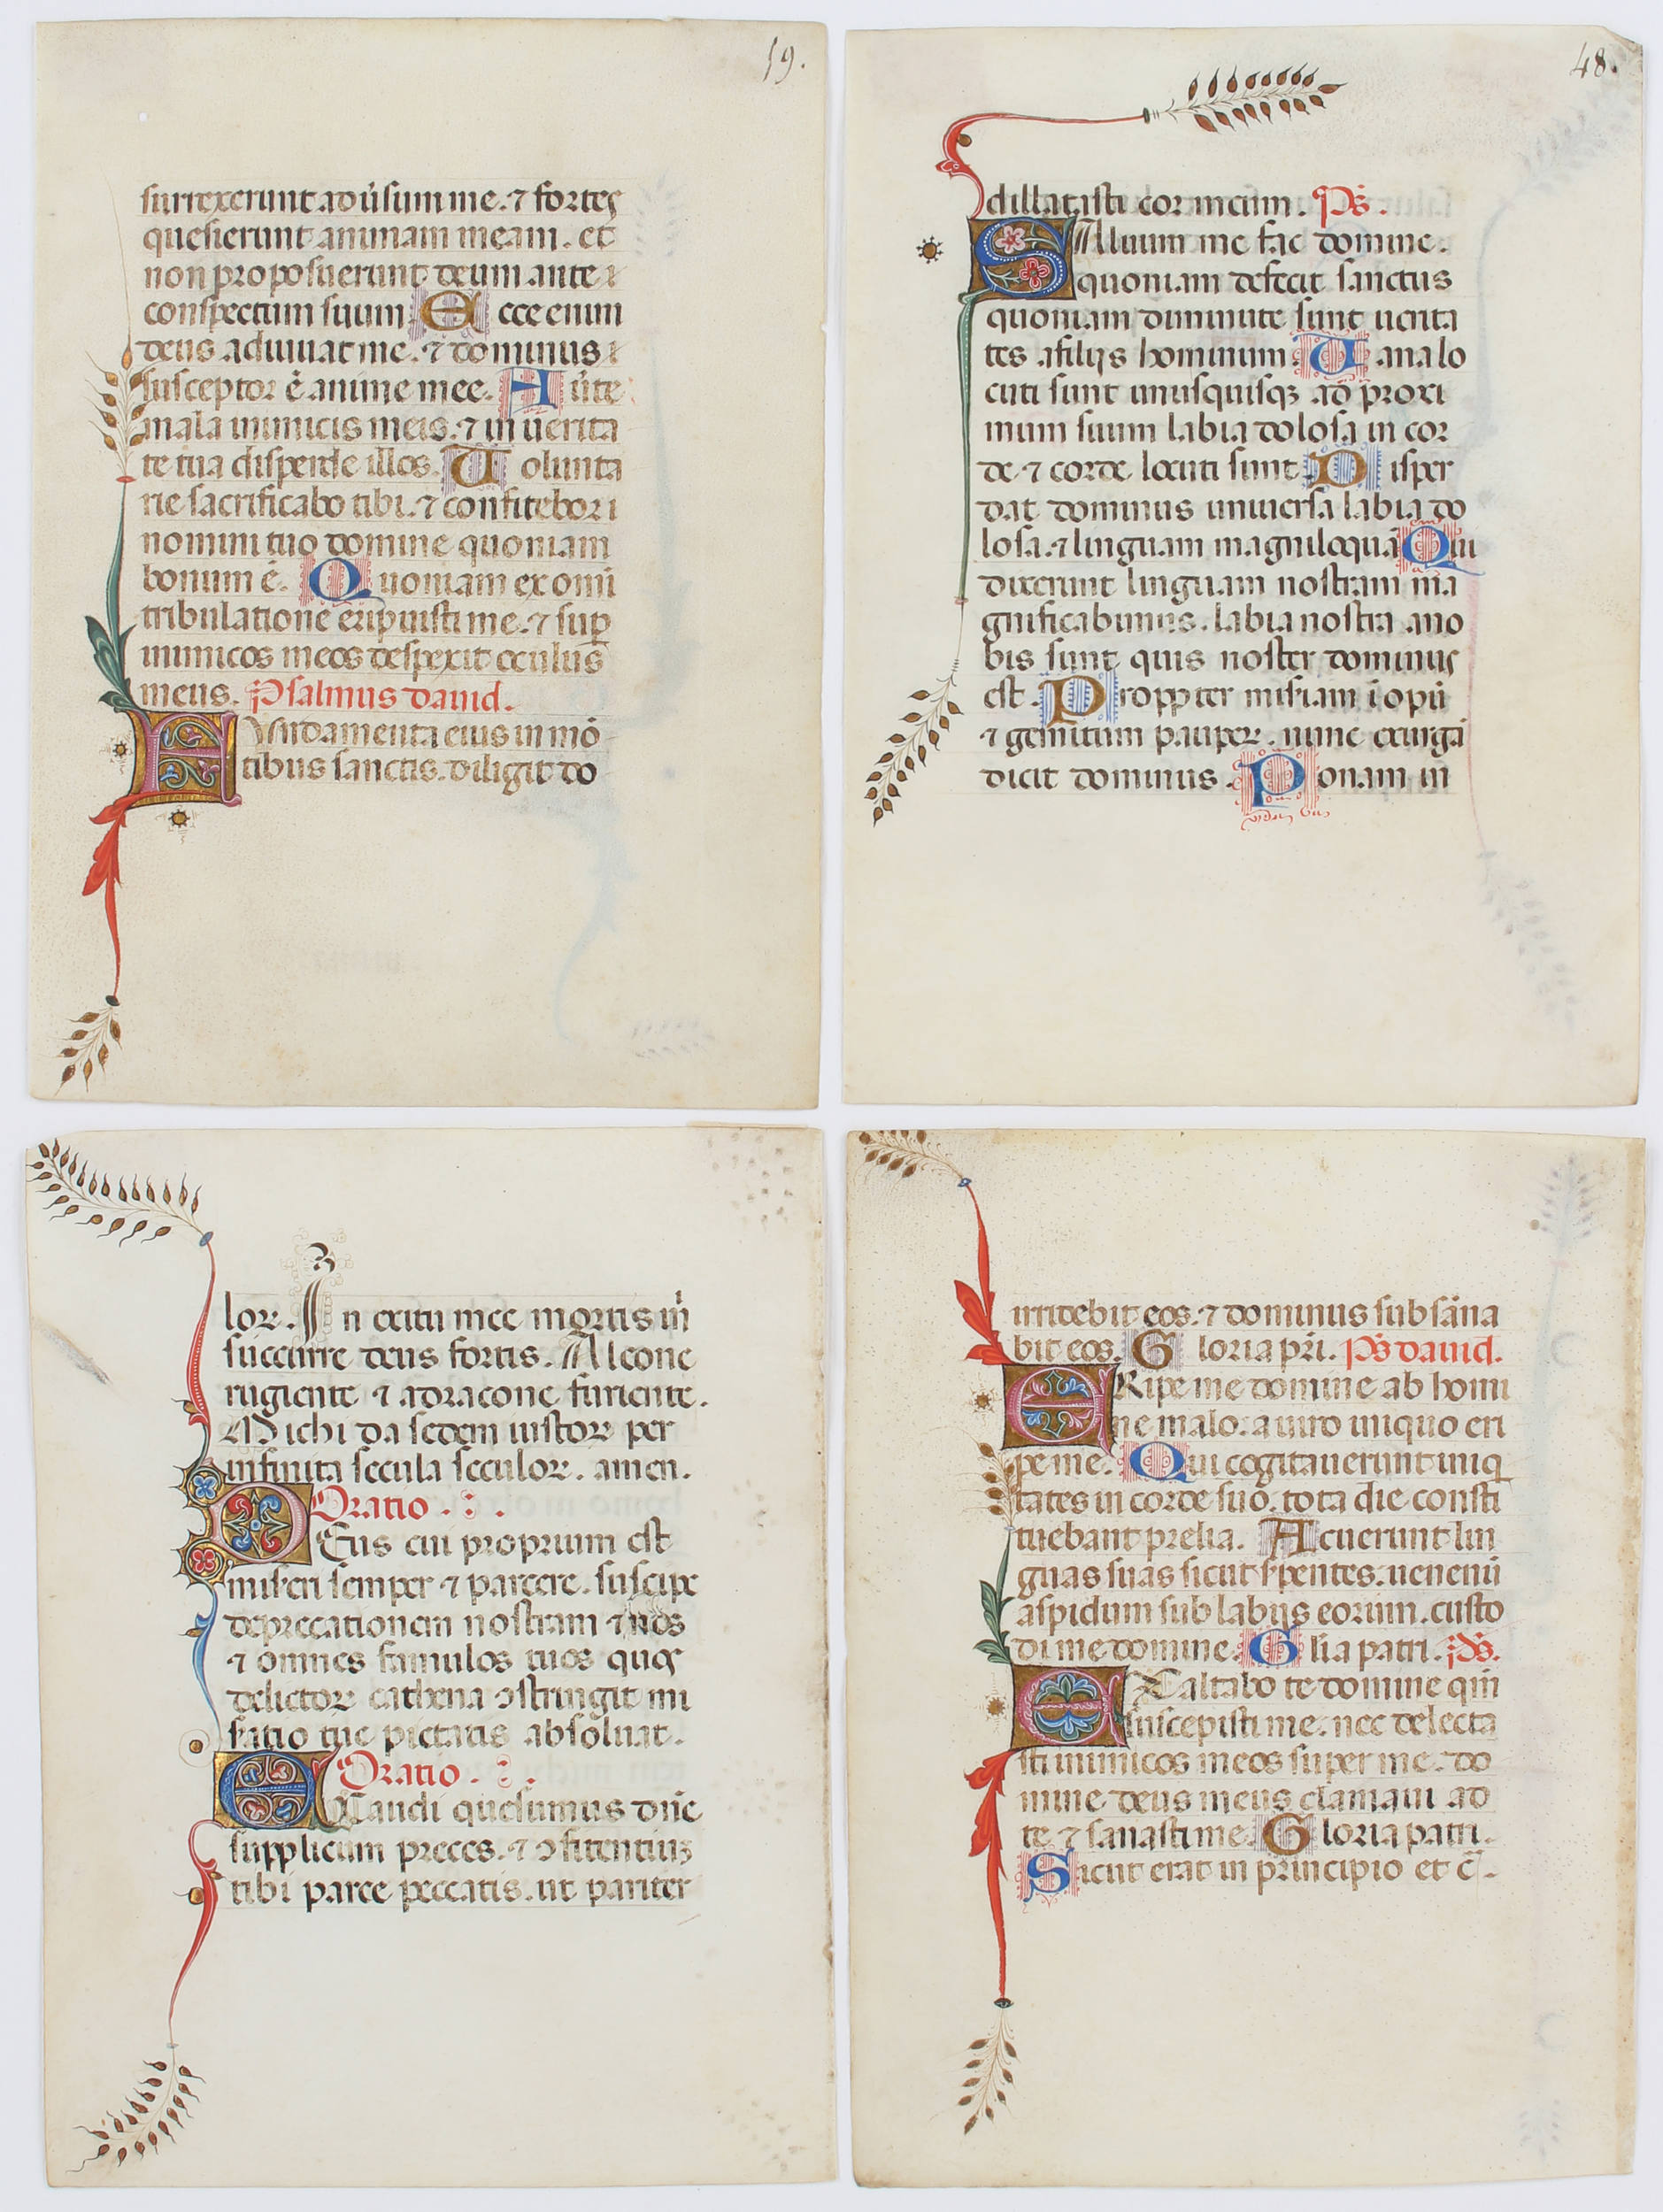 59.
surrexerunt adu̇sum me. ⁊ fortes
quesierunt animam meam. et
non proposuerunt deum ante
conspectum suum. Ecce enim
deus adiuuat me. ⁊ dominus
susceptor ē anime mee. Au̇te
mala inimicis meis. ⁊ in uerita
te tua disperde illos. Uolunta
rie sacrificabo tibi. ⁊ confitebor
nomini tuo domine quoniam
bonum ē. Quoniam ex omi
tribulatione eripuisti me. ⁊ sup
inimicos meos despexit oculus
meus. Psalmus dauid.
FUndamenta eius in mō
tibus sanctis. diligit do
48.
dillatasti cor meum. Ps̄.
SAluum me fac domine.
quoniam defecit sanctus
quoniam diminute sunt uerita
tes afilijs hominum. Uana lo
cuti sunt unusquisqꝫ ad proxi
mum suum labia dolosa in cor
de ⁊ corde locuti sunt Disper
dat dominus uniuersa labia do
losa. ⁊ linguam magniloquā Qui
dixerunt linguam nostram ma
gnificabimus. labia nostra ano
bis sunt quis noster dominus
est. Proppter misiam īopū
⁊ gemitum pauper. nunc exurgā
dicit dominus. Ponam in
lor. In exitu mee mortis m̄
succurre deus fortis. A leone
rugiente ⁊ adracone furiente.
Michi da sedem iustor per
infinita secula seculor. amen.
Oratio.
DEus cui proprium est
misen semper ⁊ parcere. suscipe
deprecationem nostram ⁊ nos
⁊ omnes famulos tuos quos
delictor cathena ɔstringit mi
satio tue pietatis absoluat.
Oratio.
EXaudi quesumus dn̄e
supplicum preces. ⁊ ɔfitentiuꝫ
tibi parce peccatis. ut pariter
irridebit eos. ⁊ dominus subsāna
bit eos. Gloria pri. Ps̄ dauid.
ERipe me domine ab homi
ne malo. a uiro iniquo eri
pe me. Qui cogitauerunt iniq
tates in corde suo. tota die consti
tuebant prelia. Acuerunt lin
guas suas sicut spentes. uenenū
aspidum sub labijs eorum. custo
di me domine. Glia patri. Ps̄.
EXaltabo te domine qm̄
suscepisti me. nec delecta
sti inimicos meos super me. do
mine deus meus clamaui ad
te ⁊ sanasti me. Gloria patri.
Sicut erat in principio et c̄.